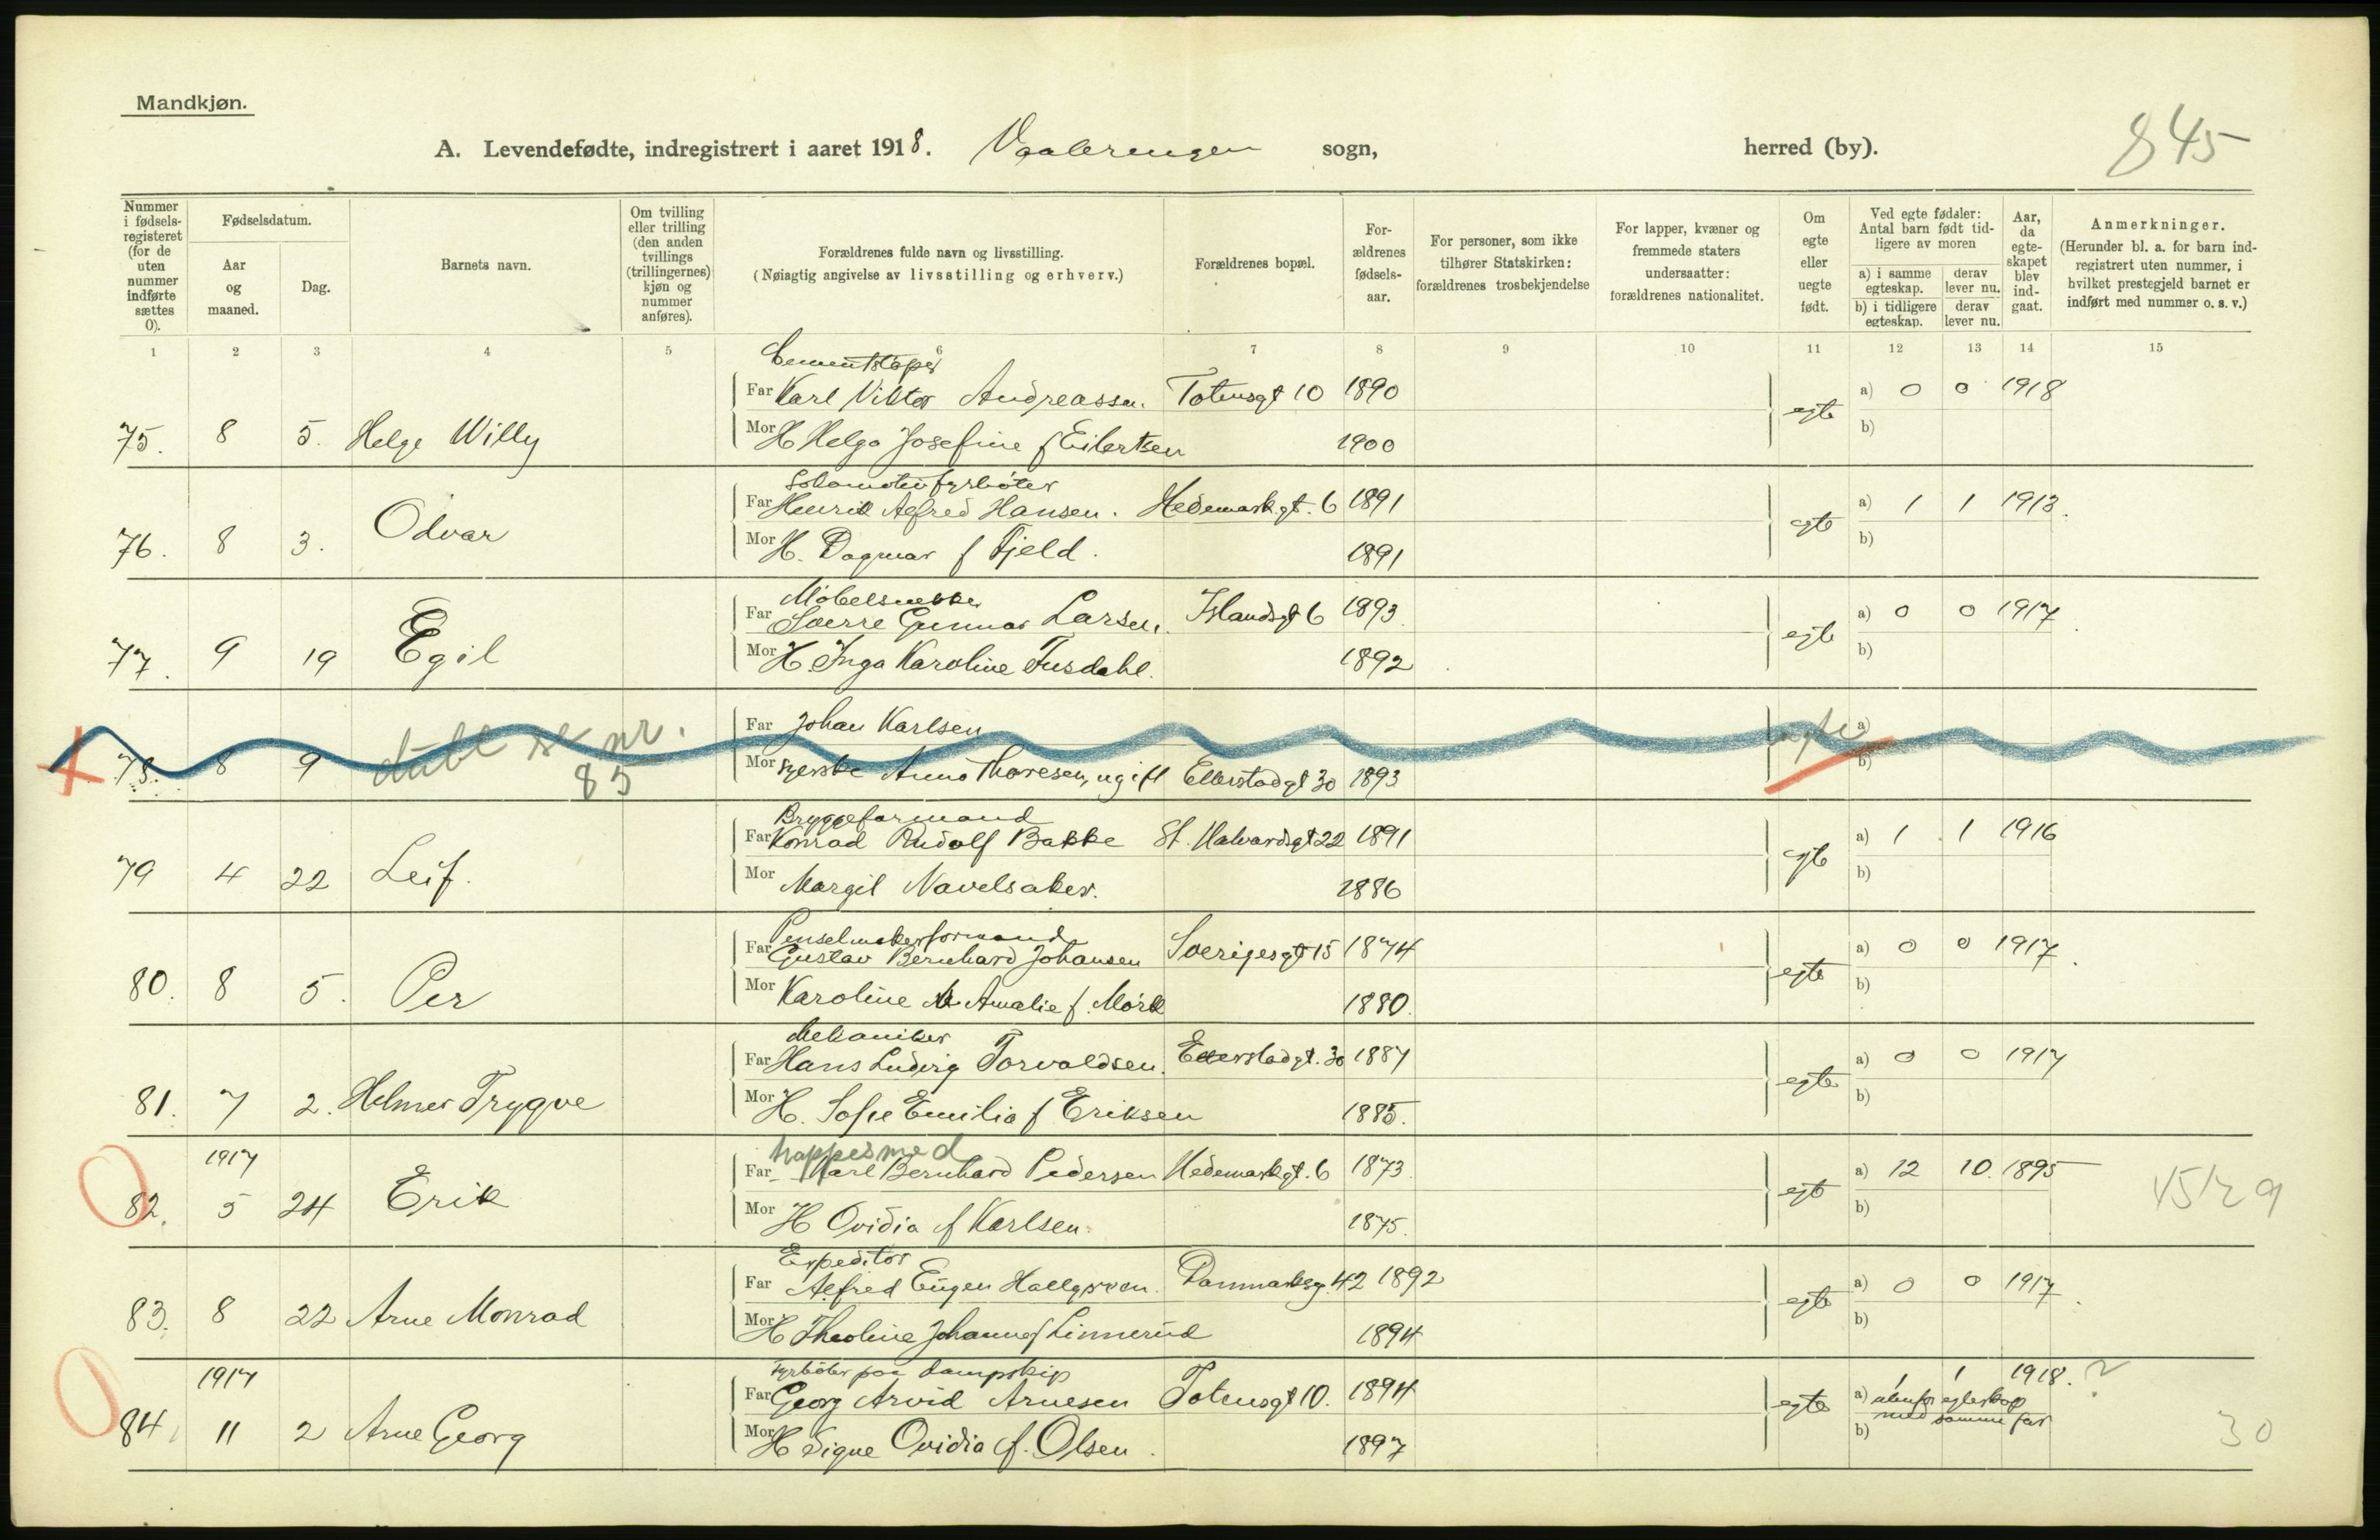 Mandkjøn.
A. Levendefødte, indregistrert i aaret 1918. Vaalerengen sogn, herred (by). 845
Nummer i fødsels-registeret (for de uten nummer indførte sættes 0).
Fødselsdatum.
Aar og maaned.
Dag.
Barnets navn.
Om tvilling eller trilling (den anden tvillings (trillingernes) kjøn og nummer anføres).
Forældrenes fulde navn og livsstilling.
(Nøiagtig angivelse av livsstilling og erhverv.)
Forældrenes bopæl.
For-ældrenes fødsels-aar.
For personer, som ikke tilhører Statskirken: forældrenes trosbekjendelse
For lapper, kvæner og fremmede staters undersaatter: forældrenes nationalitet.
Om egte eller uegte født.
Ved egte fødsler: Antal barn født tid-ligere av moren
a) i samme egteskap. derav lever nu.
b) i tidligere egteskap. derav lever nu.
Aar, da egte-skapet blev ind-gaat.
Anmerkninger.
(Herunder bl. a. for barn ind-registrert uten nummer, i hvilket prestegjeld barnet er indført med nummer o. s. v.)
1 2 3 4 5 6 7 8 9 10 11 12 13 14 15
Cementstøper
Far Karl Viktor Andreassen. Totensgt 10 1890 egte a) 0 0 1918
75. 8 5. Helge Willy
Mor H Helga Josefine f Eilertsen 1900 b)
Lokomotivfyrbøter
Far Henrik Alfred Hansen. Hedemarkgt. 6 1891 egte a) 1 1 1913.
76. 8 3. Odvar
Mor H. Dagmar f Fjeld. 1891 b)
Møbelsnekker
Far Sverre Gunnar Larsen. Islandsgt 6 1893. egte a) 0 0 1917.
77. 9 19 Egil
Mor H. Inga Karoline Tusdahl. 1892 b)
Far Johan Karlsen uegte a)
78. 8 9 dubl se nr. 85
Mor syerske Anna Thoresen, ugift Etterstadgt 30 1893 b)
Bryggeformand
Far Konrad Rudolf Bakke St. Halvardsgt 22 1891 egte a) 1 1 1916
79 4 22 Leif.
Mor Margit Navelsaker. 1886 b)
Penselmakerformand
Far Gustav Bernhard Johansen Sverigesgt 15 1874 egte a) 0 0 1917.
80. 8 5. Per
Mor Karoline Amalie f. Mørk 1880. b)
Mekaniker
Far Hans Ludvig Torvaldsen. Etterstadgt. 30 1887 egte a) 0 0 1917
81. 7 2. Helmer Trygve
Mor H. Sofie Emilia f Eriksen 1885. b)
trappesmed
1917
Far Karl Bernhard Pedersen Hedemarkgt. 6 1873. egte a) 12 10. 1895
82. 5 24 Erik
Mor H Ovidia f Karlsen. 1875. b)
Expeditør
Far Alfred Eugen Hallgreen. Danmarksg. 42 1892 egte a) 0 0 1917.
83. 8 22 Arne Monrad
Mor H Theoline Johanne f Linnerud 1894 b)
Fyrbøter paa dampskip
1917
Far Georg Arvid Arnesen Totensgt 10. 1894 egte a) 1 1 1918. ?
utenfor egteskap
med samme far
84 11 2 Arne Georg
Mor H Signe Ovidia f. Olsen. 1897 b) 30